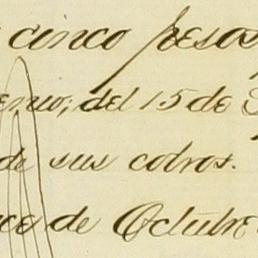 cinco pesos
del 15 de
de sus cobros.
ce de Octubre